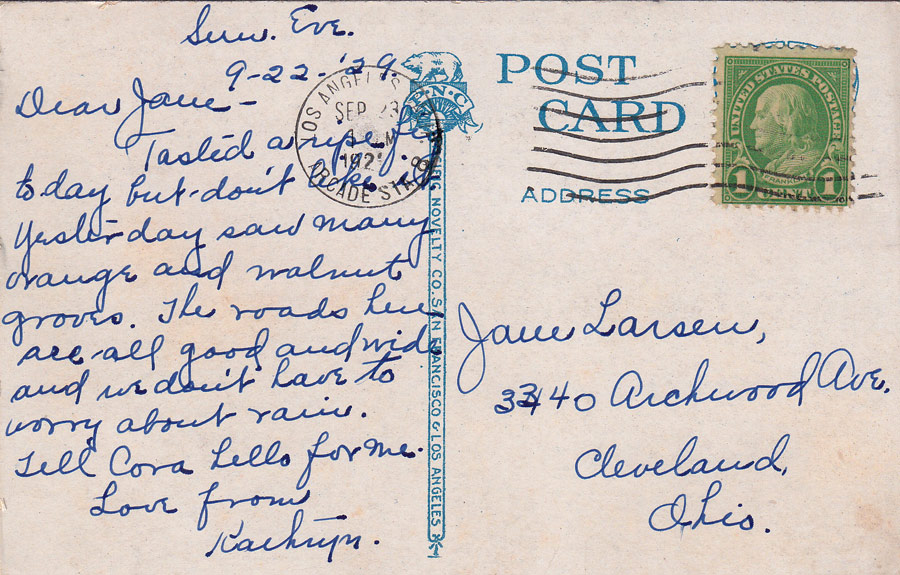 Sun. Eve.
9-22-'29.
Dear Jane-
Tasted a ripe fig
today but don't like
Yesterday saw many
orange and walnut
groves. The roads here
are all good and wide
and we don't have to
worry about rain.
Tell Cora hello for me.
Love from
Kathryn.
LOS ANGELES
SEP 23
1929
ARCADE STA
P·N·C
NOVELTY CO. SAN FRANCISCO & LOS ANGELES
POST
CARD
ADDRESS
UNITED STATES POSTAGE
FRANKLIN
1 CENT 1
Jane Larsen,
3340 Archwood Ave.
Cleveland,
Ohio.